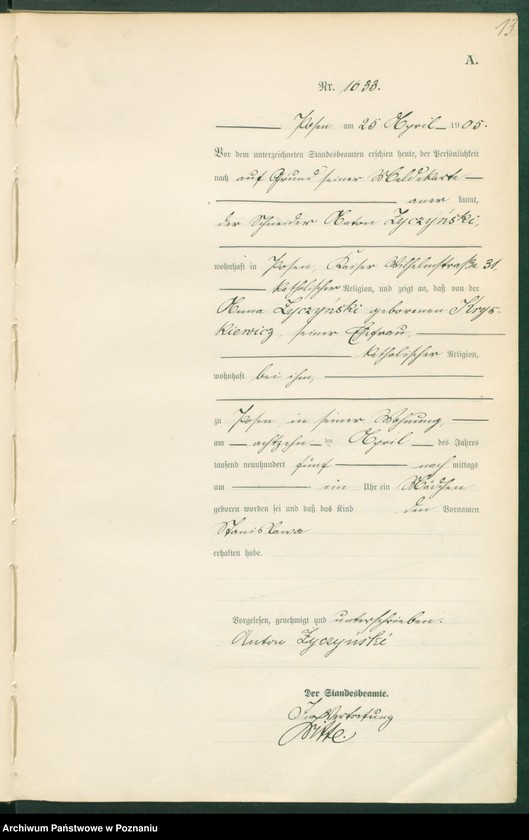 13
A.
Nr. 1033.
Posen am 25 April 1905.
Vor dem unterzeichneten Standesbeamten erschien heute, der Persönlichkeit
nach auf Grund seiner Meldekarte
aner kannt,
der Schneider Anton Zyczyński,
wohnhaft in Posen, Kaiser Wilhelmstraße 31,
katholischer Religion, und zeigt an, daß von der
Anna Zyczyński geborenen Krys-
kiewicz, seiner Ehefrau,
katholischer Religion,
wohnhaft bei ihm,
zu Posen in seiner Wohnung,
am achtzehn ten April des Jahres
tausend neunhundert fünf nach mittags
um ein Uhr ein Mädchen
geboren worden sei und daß das Kind den Vornamen
Stanisława
erhalten habe.
Vorgelesen, genehmigt und unterschrieben.
Anton Zyczyński
Der Standesbeamte.
In Vertretung
Witte.
Archiwum Państwowe w Poznaniu